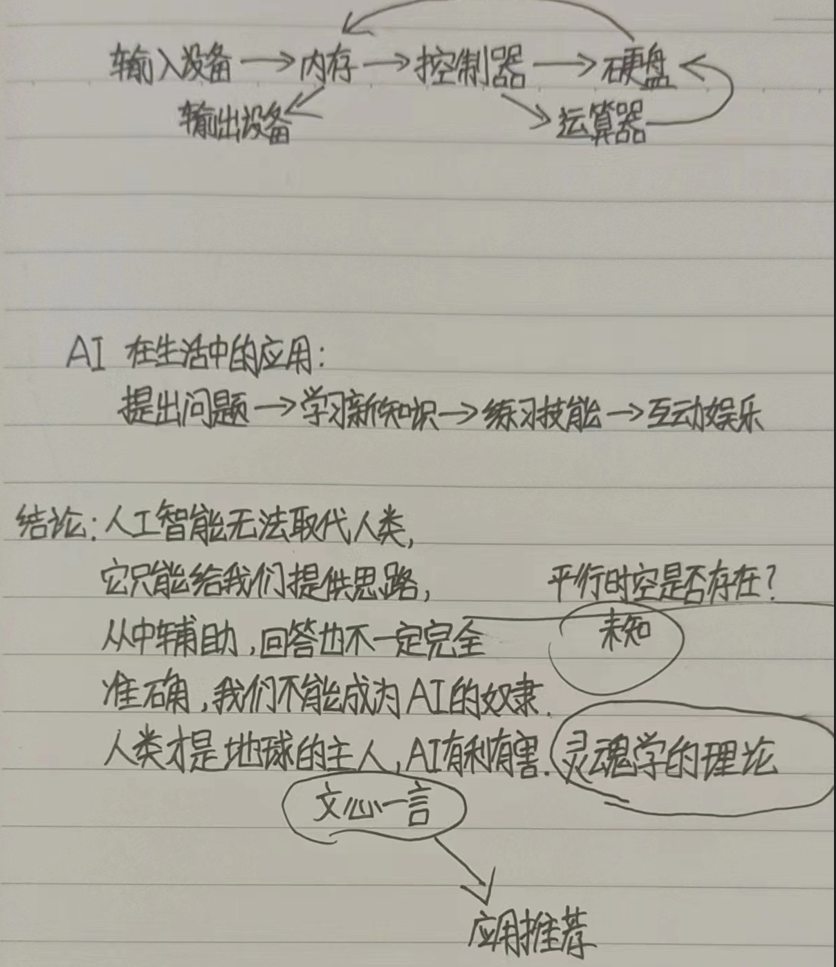 输入设备→内存→控制器→硬盘
输出设备 运算器
AI 在生活中的应用:
提出问题→学习新知识→练习技能→互动娱乐
结论:人工智能无法取代人类,
它只能给我们提供思路, 平行时空是否存在?
从中辅助,回答也不一定完全 未知
准确,我们不能成为AI的奴隶.
人类才是地球的主人,AI有利有害. 灵魂学的理论
文心一言
应用推荐